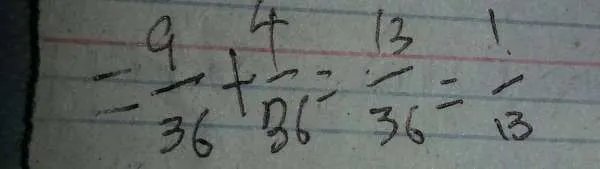 = 9/36 + 4/36 = 13/36 = 1/13